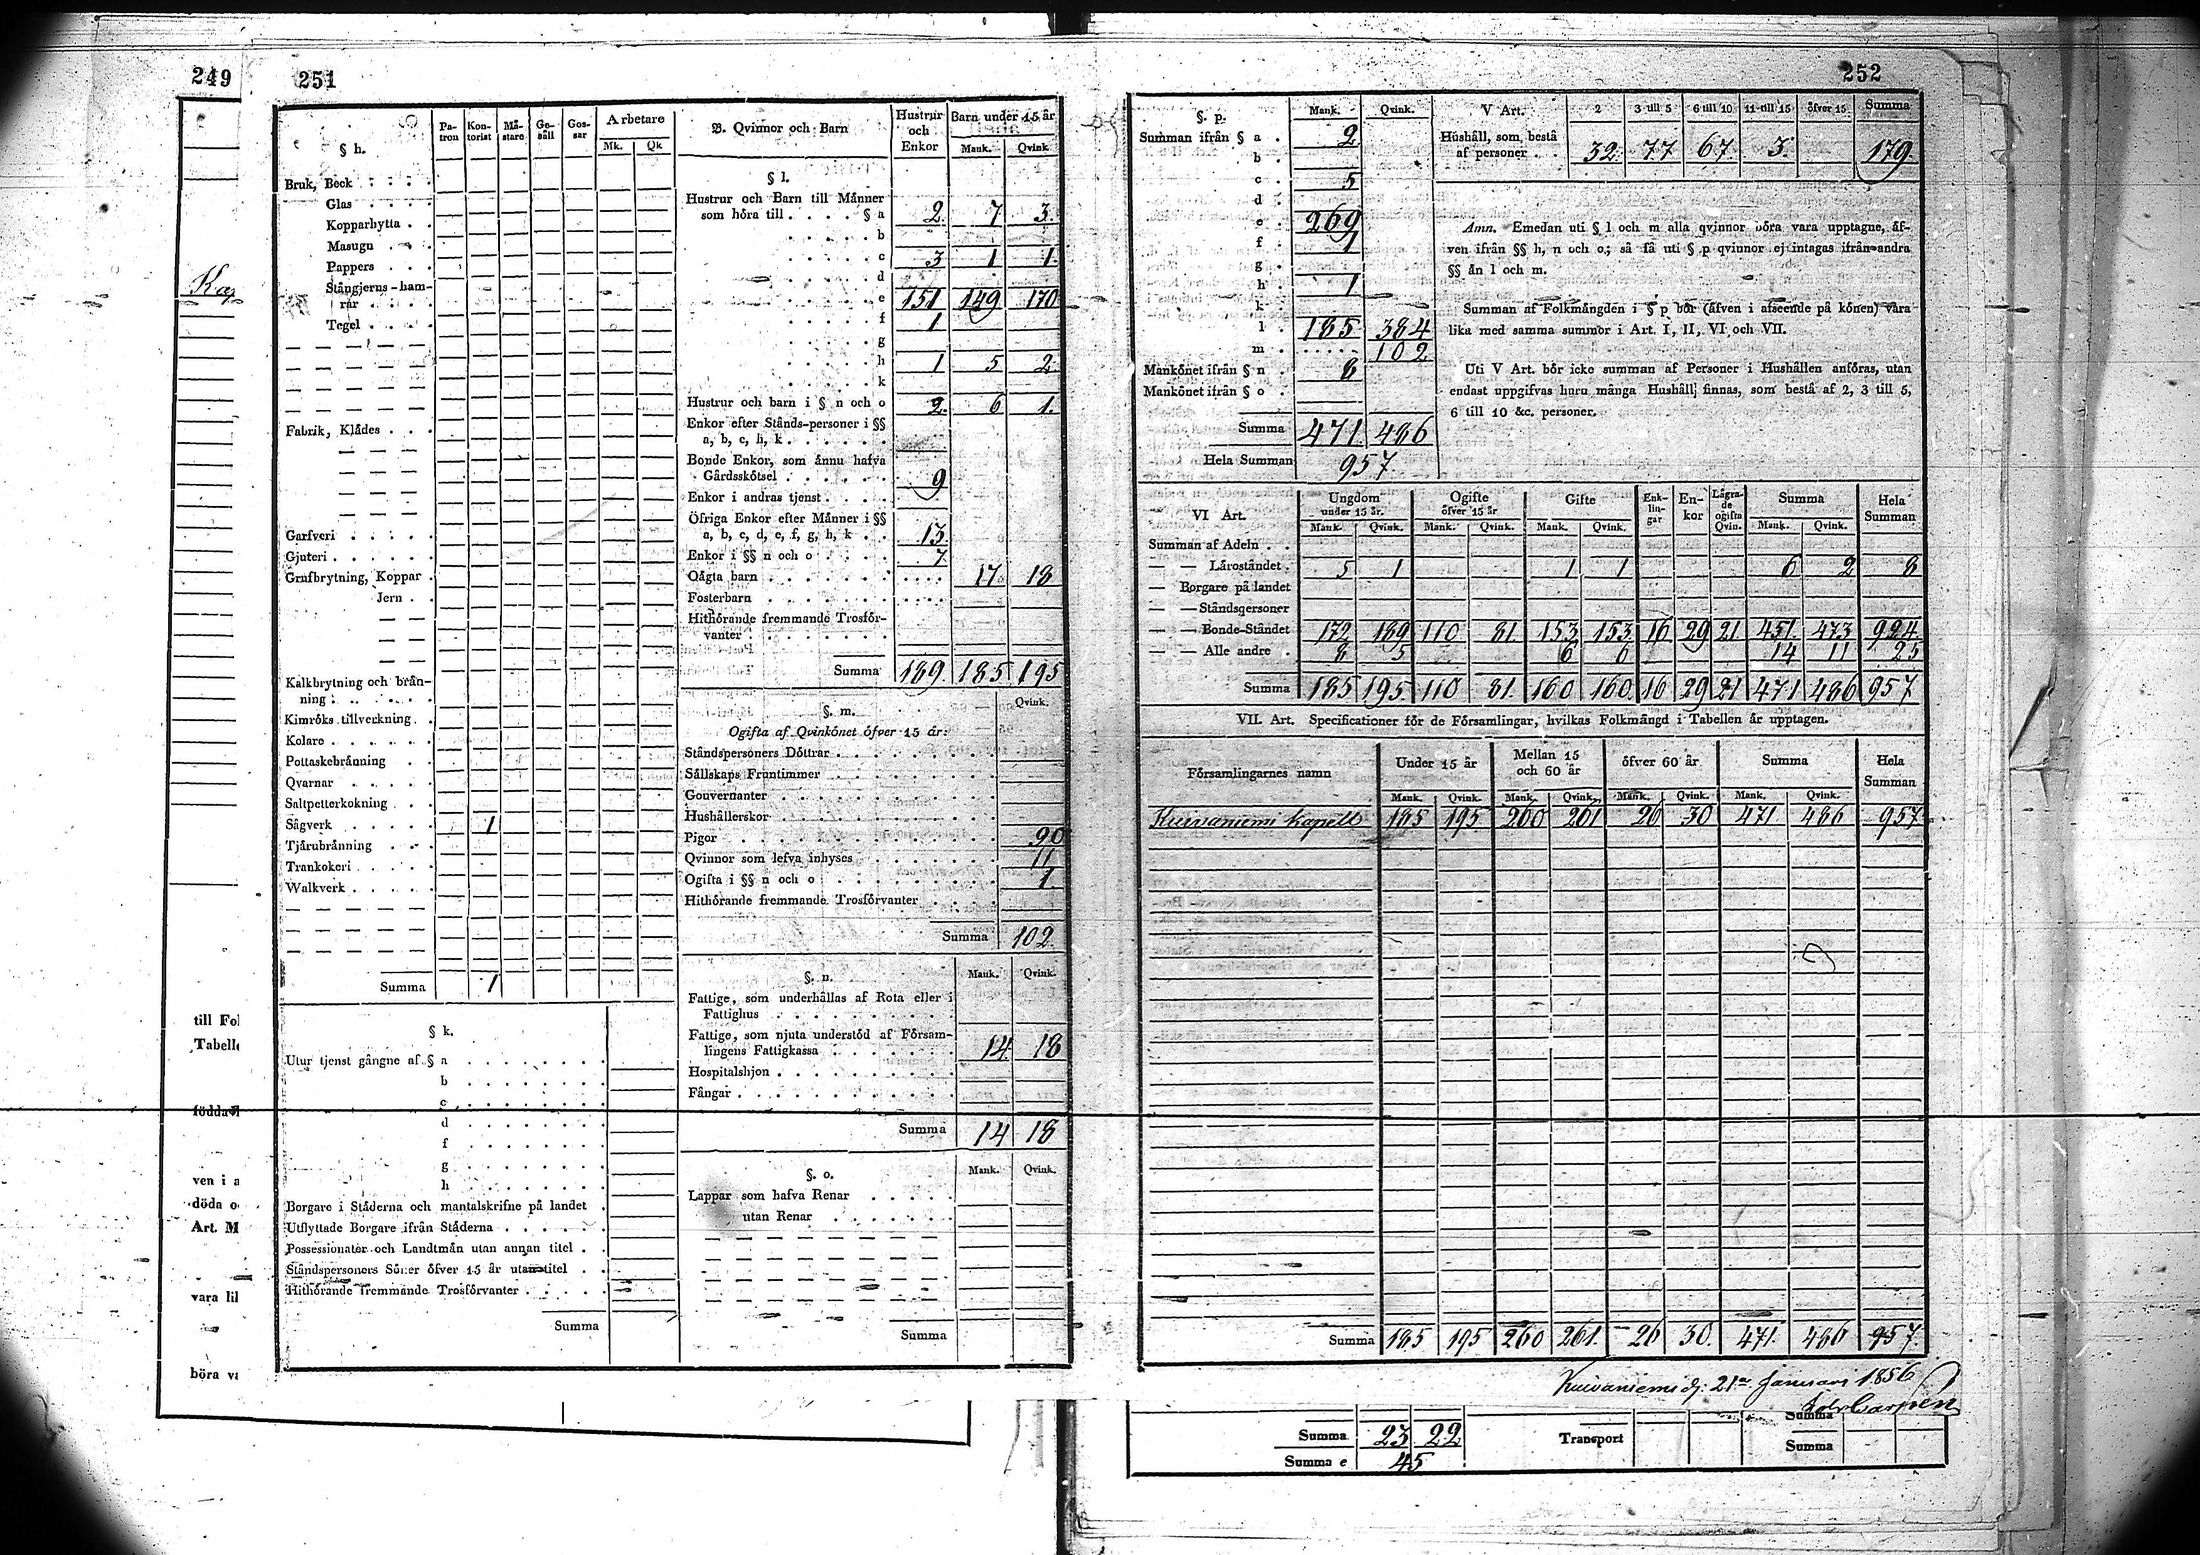 249
251
252
§ h.
Patron Kontorist Mästare Gesäll Gossar Arbetare
Mk. Qk
Bruk, Beck
Glas
Kopparhytta
Masugn
Pappers
Stångjerns-hamrar
Tegel
Fabrik, Klädes
Garfveri
Gjuteri
Grufbrytning, Koppar
Jern
Kalkbrytning och bränning
Kimröks tillverkning
Kolare
Pottaskebränning
Qvarnar
Saltpetterkokning
Sågverk 1
Tjärubränning
Trankokeri
Walkverk
Summa 1
§ k.
Utur tjenst gångne af § a
b
c
d
f
g
h
Borgare i Städerna och mantalskrifne på landet
Utflyttade Borgare ifrån Städerna
Possessionater och Landtmän utan annan titel
Ståndspersoners Söner öfver 15 år utan titel
Hithörande fremmande Trosförvanter
Summa
B. Qvinnor och Barn
Hustrur och Enkor
Barn under 15 år
Mank. Qvink
§ l.
Hustrur och Barn till Männer
som höra till § a 2 7 3
b
c 3 1 1
d
e 151 149 170
f 1
g
h 1 5 2
k
Hustrur och barn i § n och o 2 6 1
Enkor efter Stånds-personer i §§
a, b, c, h, k
Bonde Enkor, som ännu hafva
Gårdsskötsel 9
Enkor i andras tjenst
Öfriga Enkor efter Männer i §§
a, b, c, d, e, f, g, h, k 13
Enkor i §§ n och o 7
Oägta barn 17 18
Fosterbarn
Hithörande fremmande Trosförvanter
Summa 189 185 195
§. m. Qvink.
Ogifta af Qvinkönet öfver 15 år:
Ståndspersoners Döttrar
Sällskaps Fruntimmer
Gouvernanter
Hushållerskor
Pigor 90
Qvinnor som lefva inhyses 11
Ogifta i §§ n och o 1
Hithörande fremmande Trosförvanter
Summa 102
§. n. Mank. Qvink.
Fattige, som underhållas af Rota eller i
Fattighus
Fattige, som njuta understöd af Församlingens Fattigkassa 14 18
Hospitalshjon
Fångar
Summa 14 18
§. o. Mank. Qvink.
Lappar som hafva Renar
utan Renar
Summa
§. p. Mank. Qvink.
Summan ifrån § a 2
b
c 5
d
e 269
f 1
g
h 1
k
l 185 384
m 102
Mankönet ifrån § n 8
Mankönet ifrån § o
Summa 471 486
Hela Summan 957
V Art. 2 3 till 5 6 till 10 11 till 15 öfver 15 Summa
Hushåll, som bestå
af personer 32 77 67 3 179
Amn. Emedan uti § l och m alla qvinnor böra vara upptagne, äfven ifrån §§ h, n och o; så få uti § p qvinnor ej intagas ifrån andra
§§ än l och m.
Summan af Folkmängden i § p bör (äfven i afseende på könen) vara
lika med samma summor i Art. I, II, VI och VII.
Uti V Art. bör icke summan af Personer i Hushållen anföras, utan
endast uppgifvas huru många Hushåll finnas, som bestå af 2, 3 till 5,
6 till 10 &c. personer.
VI Art.
Ungdom under 15 år. Ogifte öfver 15 år Gifte Enklingar Enkor Lägrade ogifta Qvin. Summa Hela Summan
Mank. Qvink. Mank. Qvink. Mank. Qvink. Mank. Qvink.
Summan af Adeln
— — Läroståndet 5 1 1 1 6 2 8
— Borgare på landet
— — Ståndspersoner
— — Bonde-Ståndet 172 189 110 81 153 153 16 29 21 451 473 924
— — Alle andre 8 5 6 6 14 11 25
Summa 185 195 110 81 160 160 16 29 21 471 486 957
VII. Art. Specificationer för de Församlingar, hvilkas Folkmängd i Tabellen är upptagen.
Församlingarnes namn Under 15 år Mellan 15 och 60 år öfver 60 år Summa Hela Summan
Mank. Qvink. Mank. Qvink. Mank. Qvink. Mank. Qvink.
Kuivaniemi Kapell 185 195 260 261 26 30 471 486 957
Summa 185 195 260 261 26 30 471 486 957
Kuivaniemi d: 21a Januari 1856
Summa 23 22 Transport Summa
Summa e 45 Summa
till Fol
Tabelle
födda
ven i a
döda o
Art. M
vara lil
böra va